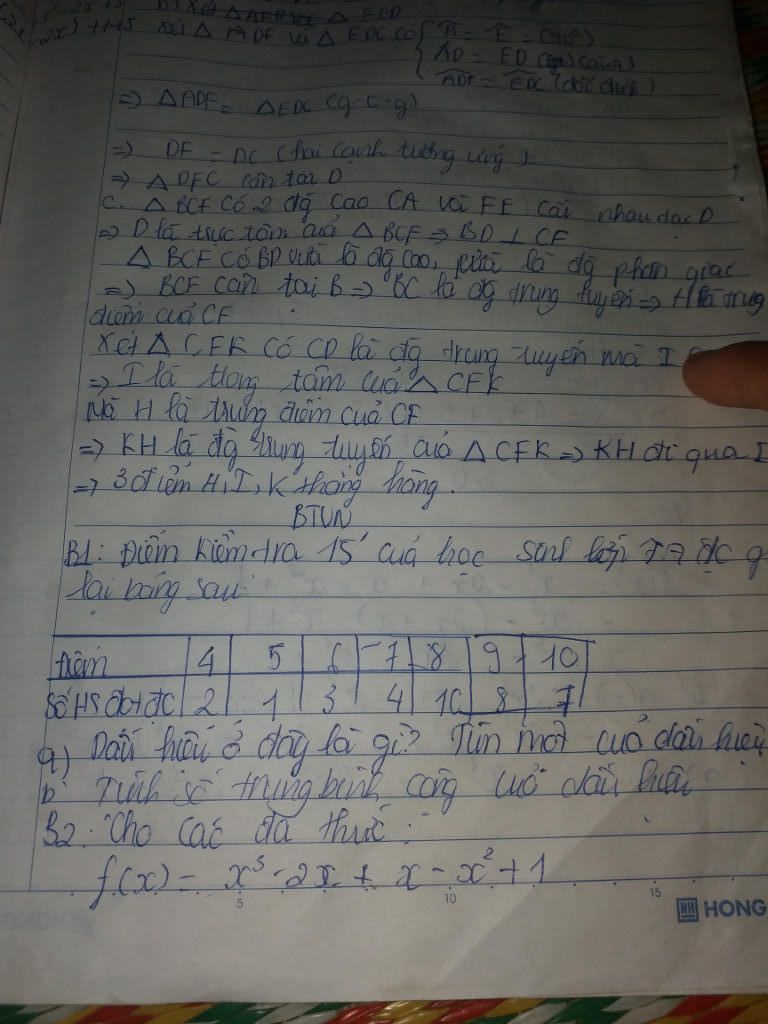 b) Xét △ AEF và △ ECD
2x) + 1 - 5 Xét △ ADF và △ EDC có Â = Ê = (90°)
AD = ED (cạng)
ADF = EDC (đối đỉnh)
=> △ADF = △EDC (g-c-g)
=> DF = DC (hai cạnh tương ứng)
=> △DFC cân tại D
c. △ BCF có 2 đg cao CA và FE cắt nhau tại D
=> D là trực tâm cuả △ BCF => BD ⊥ CF
△ BCF có BD vừa là đg cao, vừa là đg phân giác
=> BCF cân tại B => BC là đg trung tuyến => H là trung
điểm cuả CF
Xét △ CFK có CD là đg trung tuyến mà I
=> I là trong tâm cuả △ CFK
Mà H là trung điểm cuả CF
=> KH là đg trung tuyến cuả △ CFK => KH đi qua I
=> 3 điểm H, I, K thẳng hàng.
BTVN
B1: Điểm kiểm tra 15' cuả học sinh lớp 7A đc g
lại bảng sau:
Điểm 4 5 6 7 8 9 10
Số HS đạt đc 2 1 3 4 10 8 7
a) Dấu hiệu ở đây là gì? Tìm mốt cuả dấu hiệu
b Tính số trung bình cộng cuả dấu hiệu
B2: Cho các đa thức:
f(x) = x³ - 2x + x - x² + 1
5 10 15
HONG